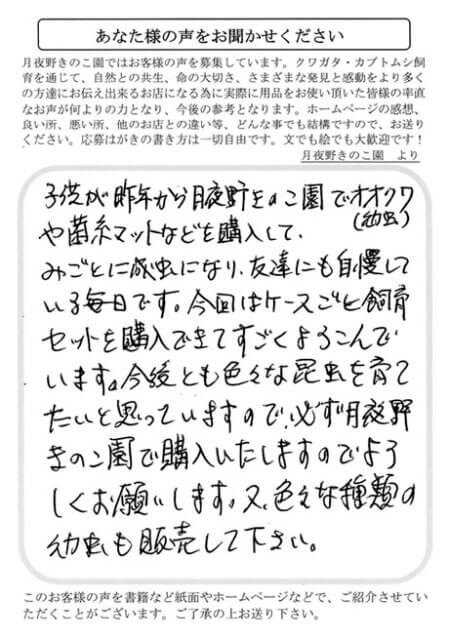 あなた様の声をお聞かせください
月夜野きのこ園ではお客様の声を募集しています。クワガタ・カブトムシ飼
育を通じて、自然との共生、命の大切さ、さまざまな発見と感動をより多く
の方達にお伝え出来るお店になる為に実際に用品をお使い頂いた皆様の率直
なお声が何よりの力となり、今後の参考となります。ホームページの感想、
良い所、悪い所、他のお店との違い等、どんな事でも結構ですので、お送り
ください。応募はがきの書き方は一切自由です。文でも絵でも大歓迎です！
月夜野きのこ園　より
子供が昨年から月夜野きのこ園でオオクワ
(幼虫)
や菌糸マットなどを購入して、
みごとに成虫になり、友達にも自慢して
いる毎日です。今回はケースごと飼育
セットを購入できてすごくよろこんで
います。今後とも色々な昆虫を育て
たいと思っていますので、必ず月夜野
きのこ園で購入いたしますのでよろ
しくお願いします。又、色々な種類の
幼虫も販売して下さい。
このお客様の声を書籍など紙面やホームページなどで、ご紹介させてい
ただくことがございます。ご了承の上お送り下さい。